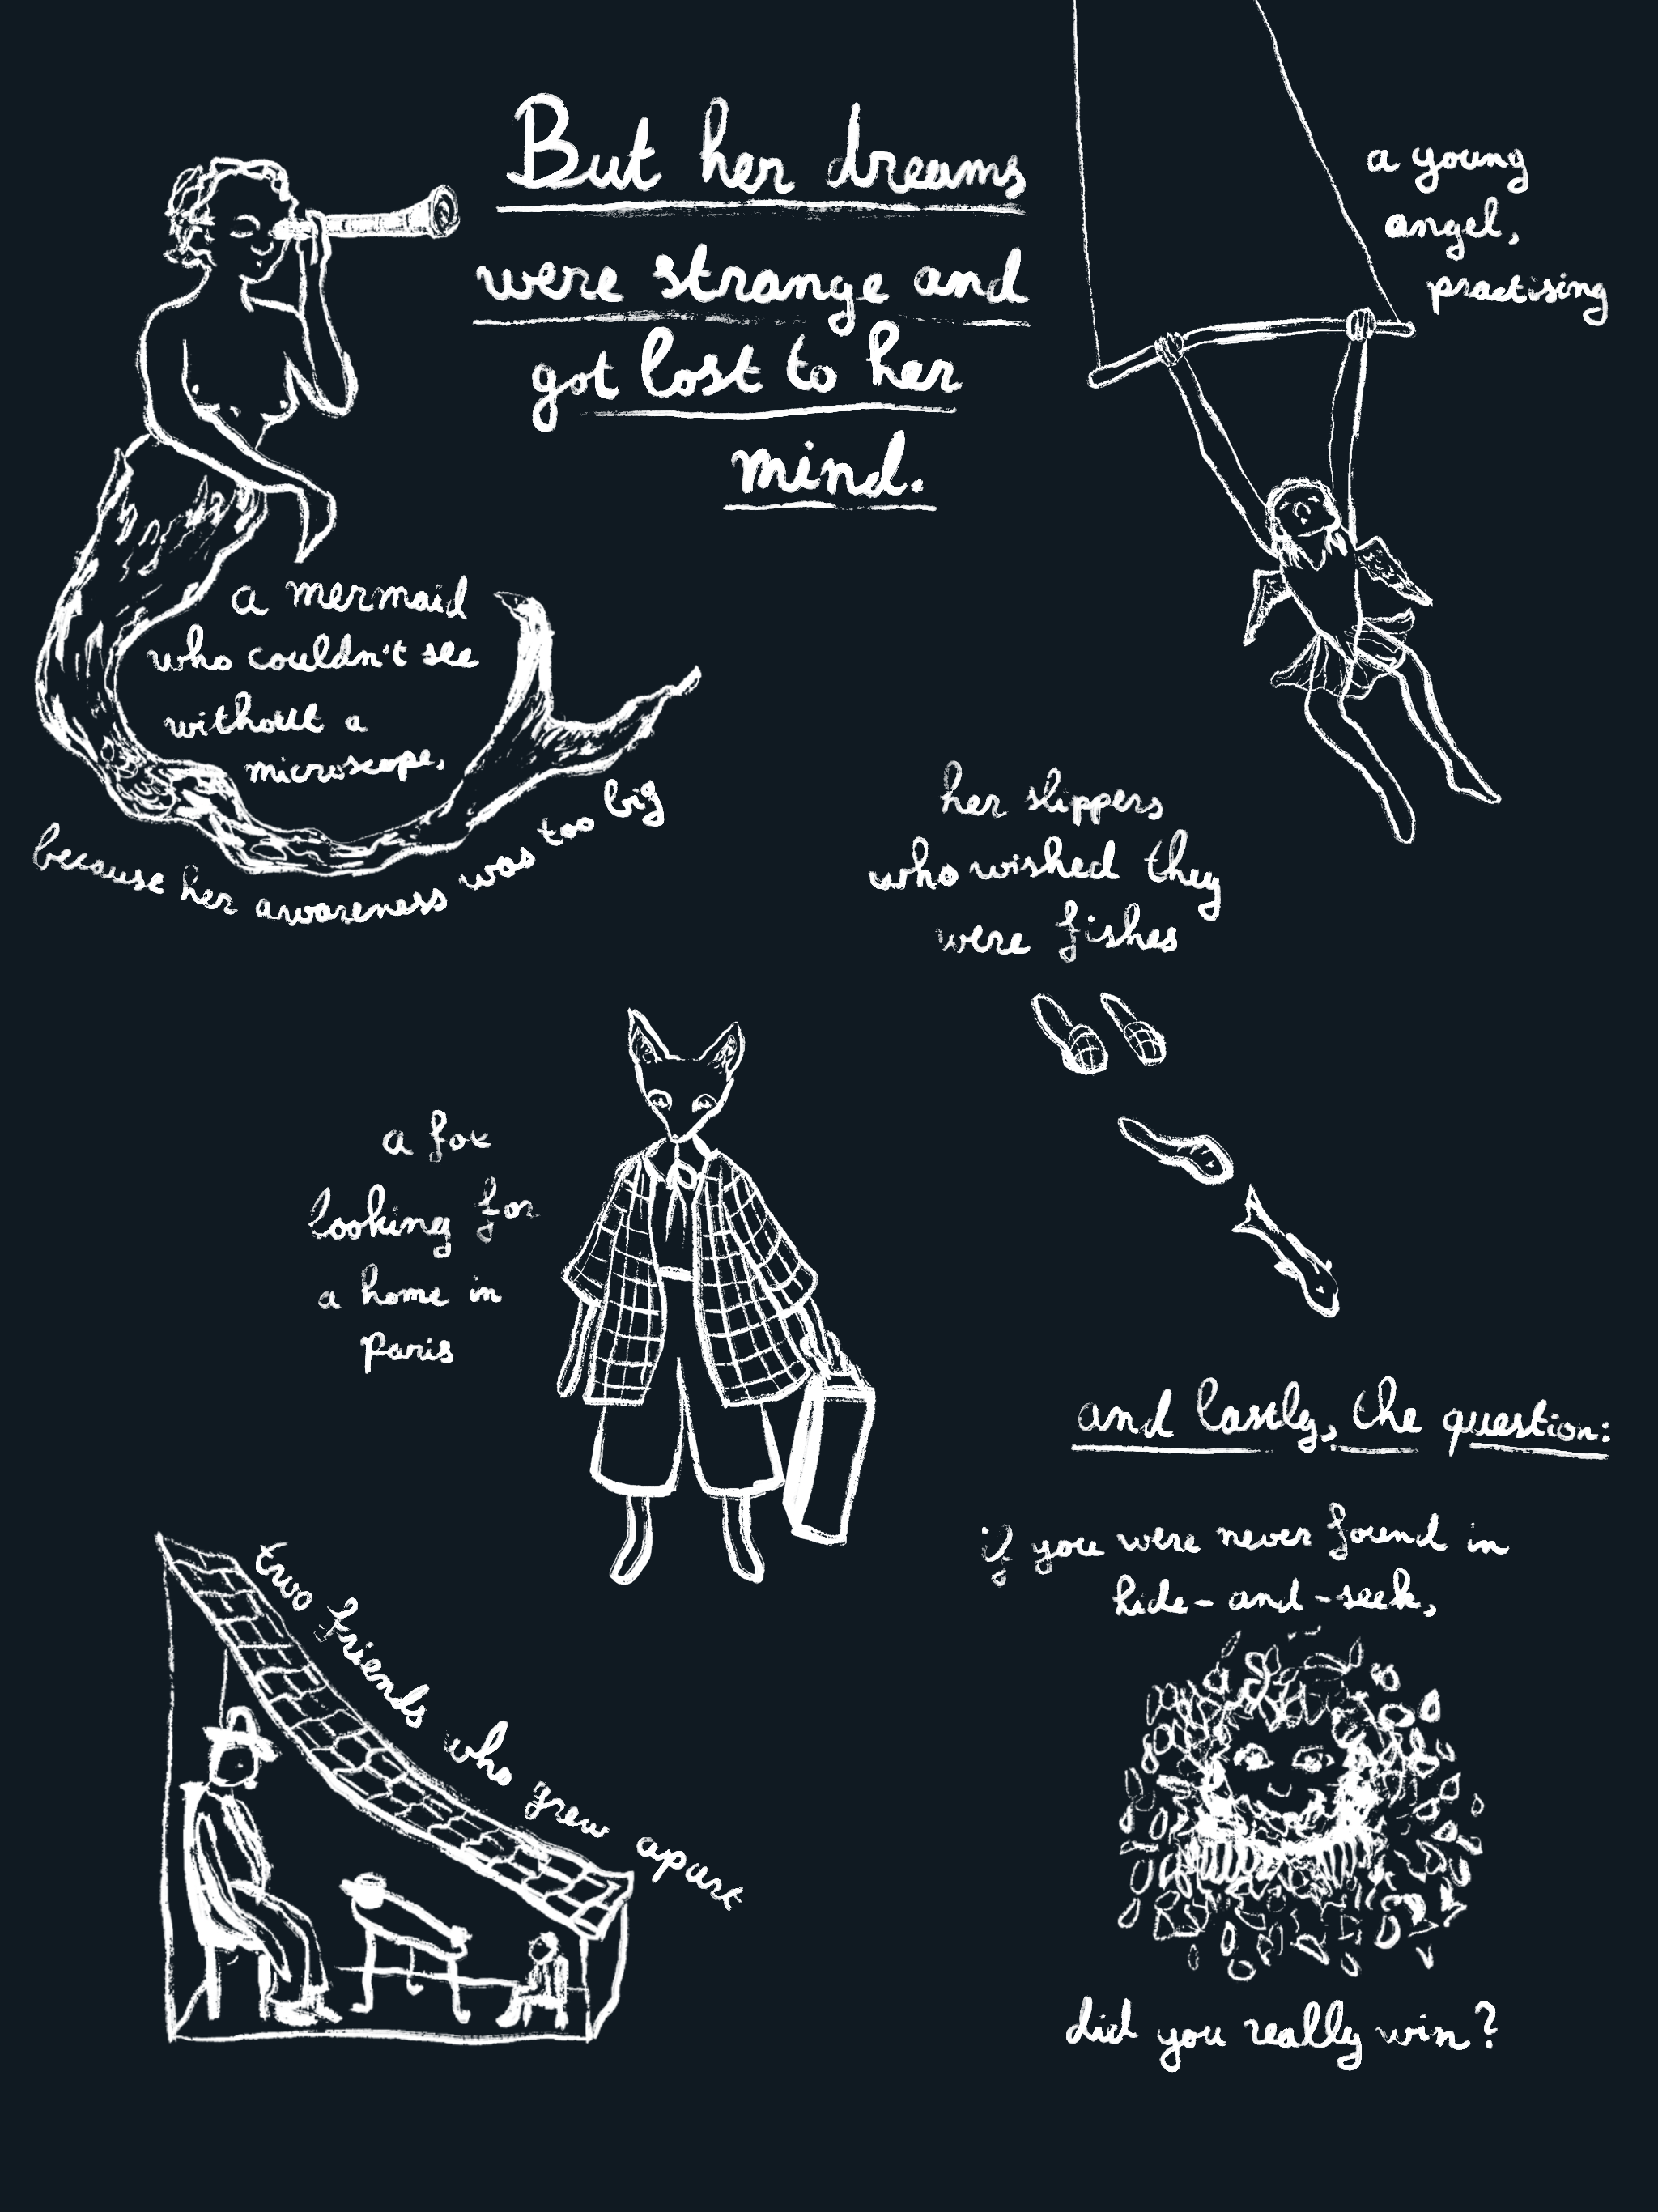 But her dreams
were strange and
got lost to her
mind.
a young
angel,
practising
a mermaid
who couldn't see
without a
microscope,
because her awareness was too big
her slippers
who wished they
were fishes
a fox
looking for
a home in
Paris
two friends who grew apart
and lastly, the question:
if you were never found in
hide-and-seek,
did you really win?